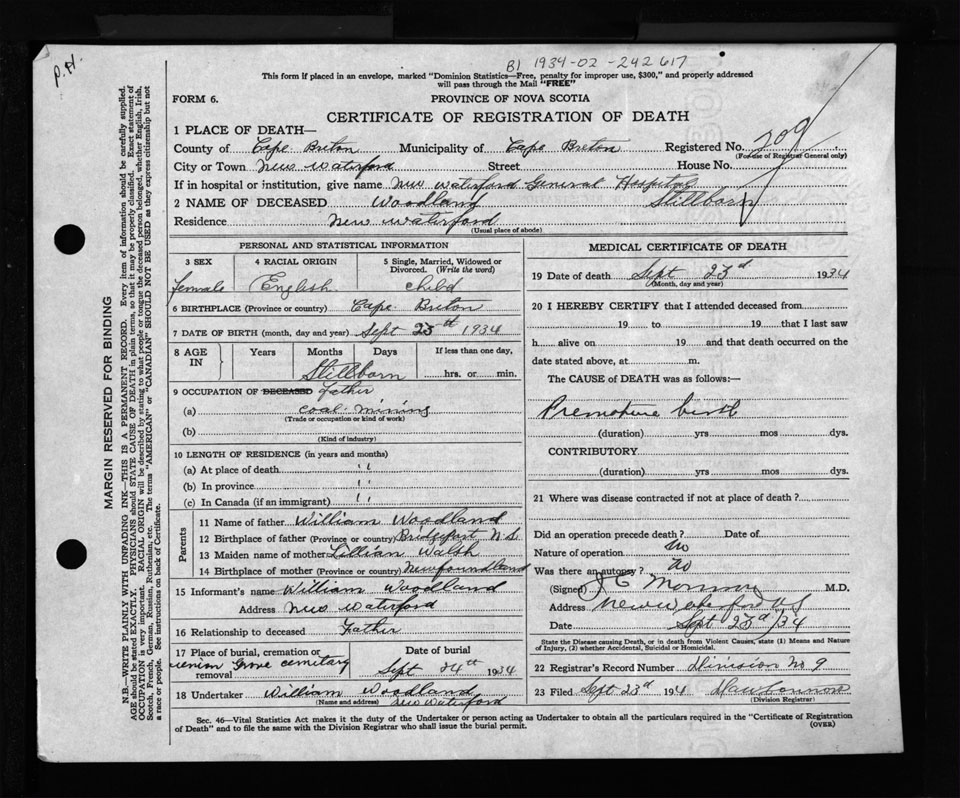 P.H.
B1 1934-02-242617
This form if placed in an envelope, marked "Dominion Statistics—Free, penalty for improper use, $300," and properly addressed
will pass through the Mail "FREE"
FORM 6.
PROVINCE OF NOVA SCOTIA
CERTIFICATE OF REGISTRATION OF DEATH
1 PLACE OF DEATH—
County of Cape Breton Municipality of Cape Breton Registered No. 209
(For use of Registrar General only)
City or Town New Waterford Street House No.
If in hospital or institution, give name New Waterford General Hospital
2 NAME OF DECEASED Woodland Stillborn
Residence New Waterford
(Usual place of abode)
PERSONAL AND STATISTICAL INFORMATION
3 SEX 4 RACIAL ORIGIN 5 Single, Married, Widowed or Divorced. (Write the word)
female English child
6 BIRTHPLACE (Province or country) Cape Breton
7 DATE OF BIRTH (month, day and year) Sept 23th 1934
8 AGE IN Years Months Days If less than one day,
Stillborn hrs. or min.
9 OCCUPATION OF DECEASED Father
(a) coal mining
(Trade or occupation or kind of work)
(b)
(Kind of industry)
10 LENGTH OF RESIDENCE (in years and months)
(a) At place of death ' '
(b) In province ' '
(c) In Canada (if an immigrant) ' '
Parents
11 Name of father William Woodland
12 Birthplace of father (Province or country) Bridgeport N.S.
13 Maiden name of mother Lillian Walsh
14 Birthplace of mother (Province or country) Newfoundland
15 Informant's name William Woodland
Address New Waterford
16 Relationship to deceased Father
17 Place of burial, cremation or removal Date of burial
union Grove cemitary Sept 24th 1934
18 Undertaker William Woodland
(Name and address) New Waterford
MEDICAL CERTIFICATE OF DEATH
19 Date of death Sept 23d 1934
(Month, day and year)
20 I HEREBY CERTIFY that I attended deceased from
19 to 19 that I last saw
h alive on 19 and that death occurred on the
date stated above, at m.
The CAUSE of DEATH was as follows:—
Premature birth
(duration) yrs. mos dys.
CONTRIBUTORY
(duration) yrs. mos. dys.
21 Where was disease contracted if not at place of death ?
Did an operation precede death ? No Date of
Nature of operation
Was there an autopsy ? No
(Signed) M.D.
Address New Waterford NS
Date Sept 23d/34
State the Disease causing Death, or in death from Violent Causes, state (1) Means and Nature
of Injury, (2) whether Accidental, Suicidal or Homicidal.
22 Registrar's Record Number Division No 9
23 Filed Sept 23d 1934
(Division Registrar)
Sec. 46—Vital Statistics Act makes it the duty of the Undertaker or person acting as Undertaker to obtain all the particulars required in the "Certificate of Registration
of Death" and to file the same with the Division Registrar who shall issue the burial permit.
(OVER)
MARGIN RESERVED FOR BINDING
N.B.—WRITE PLAINLY WITH UNFADING INK—THIS IS A PERMANENT RECORD. Every item of information should be carefully supplied.
AGE should be stated EXACTLY. PHYSICIANS should STATE CAUSE OF DEATH in plain terms, so that it may be properly classified. Exact statement of
OCCUPATION is very important. RACIAL ORIGIN will be described by stating to what people or tongue the deceased person belonged, whether English, Irish,
Scotch, French, German, Russian, Ruthenian, etc. The terms "AMERICAN" or "CANADIAN" SHOULD NOT BE USED as they express citizenship but not
a race or people. See instructions on back of Certificate.